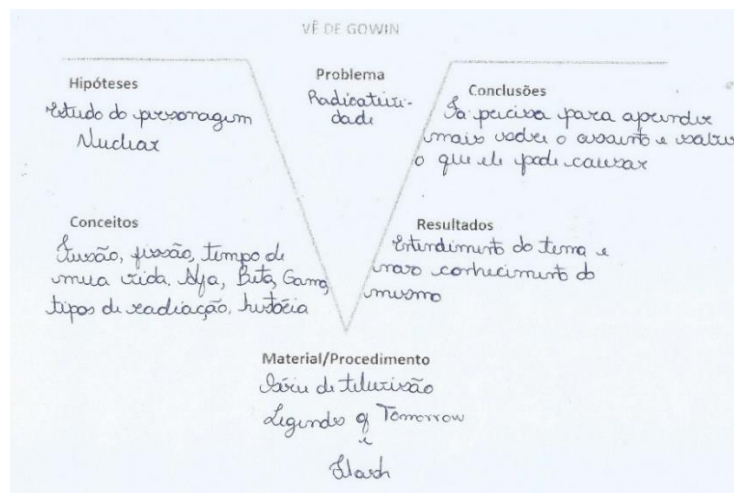 VÊ DE GOWIN
Hipóteses
Estudo do personagem
Nuclear
Problema
Radioativi-
dade
Conclusões
precisa para aprender
mais sobre o assunto e saber
o que ele pode causar
Conceitos
Fusão, fissão, tempo de
meia vida, Alfa, Beta, Gama,
tipos de radiação, história
Resultados
Entendimento do tema e
conhecimento do
mesmo
Material/Procedimento
Série de televisão
Legends of Tomorrow
e
Flash